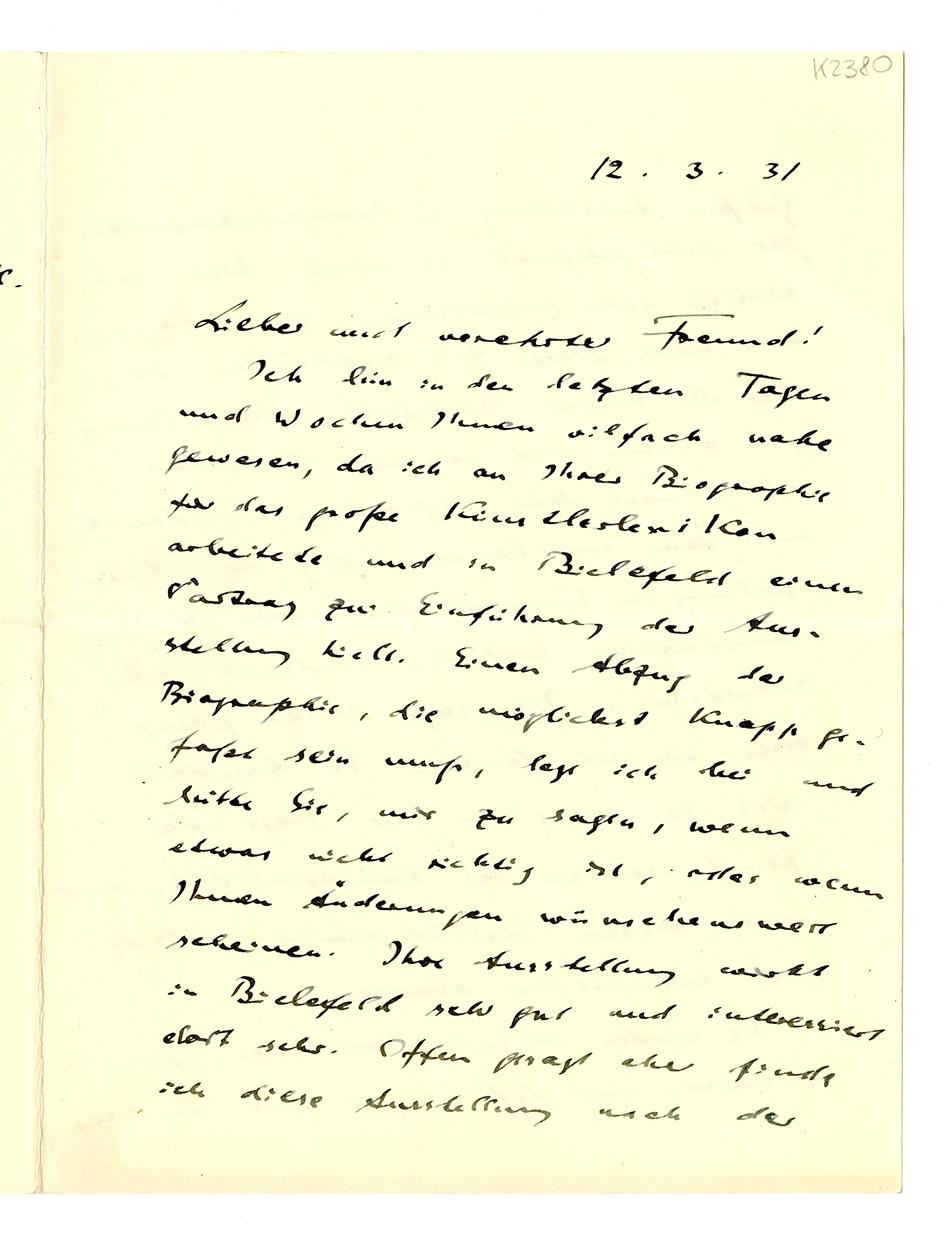 K2380
12. 3. 31
Lieber und verehrter Freund!
Ich bin in den letzten Tagen
und Wochen Ihnen vilfach nahe
gewesen, da ich an Ihrer Biographie
für das große Künstlerlexikon
arbeitete und in Bielefeld einen
Vortrag zur Einführung der Aus-
stellung hielt. Einen Abzug der
Biographie, die möglichst knapp ge-
faßt sein muß, lege ich bei und
bitte Sie, mir zu sagen, wenn
etwas nicht richtig ist, oder wenn
Ihnen Änderungen wünschenswert
scheinen. Ihre Ausstellung wirkt
in Bielefeld sehr gut und interessiert
dort sehr. Offen gesagt aber finde
ich diese Ausstellung nach der